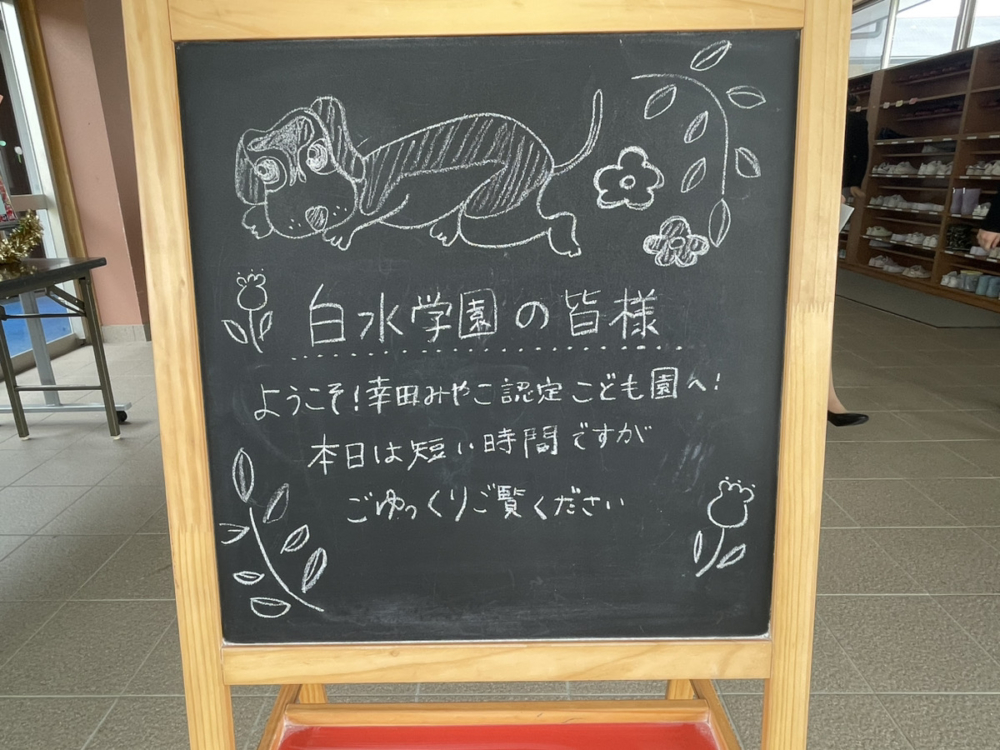 白水学園の皆様
ようこそ!幸田みやこ認定こども園へ!
本日は短い時間ですが
ごゆっくりご覧ください